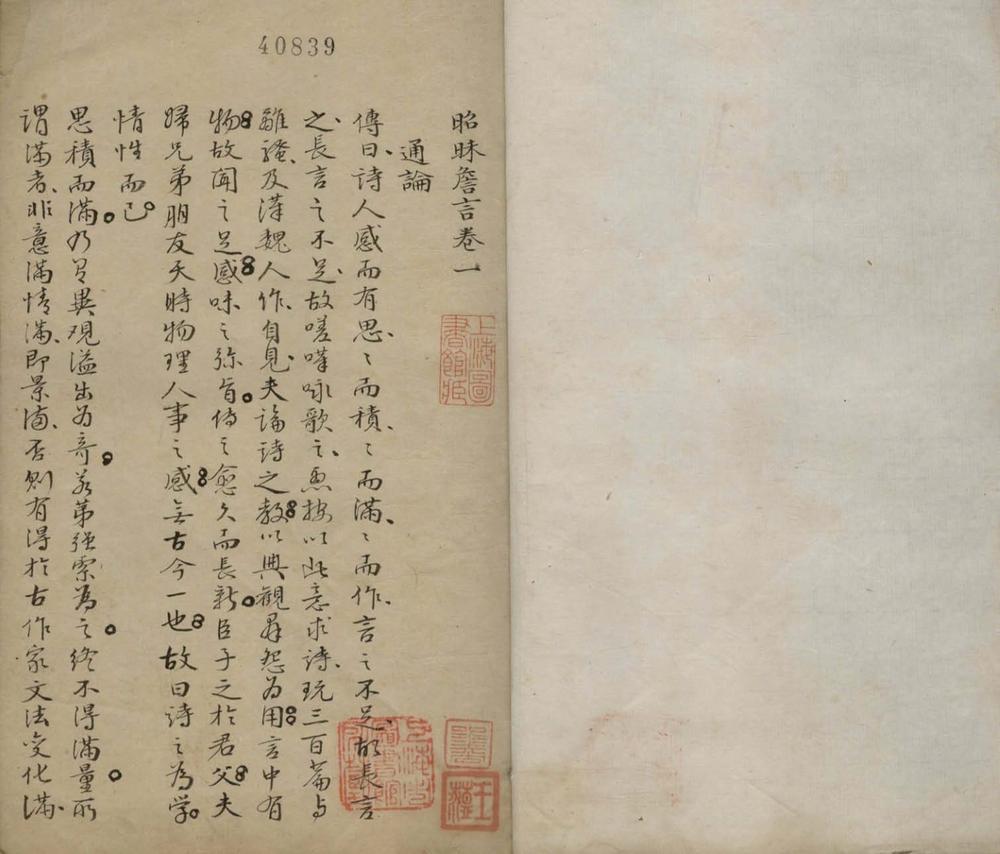 40839
昭昧詹言卷一
通論
傳曰、詩人感而有思、〻而積、〻而滿、〻而作、言之不足、故長言
之、長言之不足、故嗟嘆咏歌之、愚按以此意求詩、玩三百篇与
離騷、及漢魏人作、自見夫論詩之教以興觀羣怨为用言中有
物故聞之足感味之弥旨傳之愈久而長新臣子之於君父夫
婦兄弟朋友天時物理人事之感無古今一也故曰詩之為学
情性而已
思積而滿乃有異观溢出为奇若第强索為之終不得滿量所
謂滿者、非意滿情滿、即景滿、否則有得於古作家文法变化滿、
上海圖書館臧